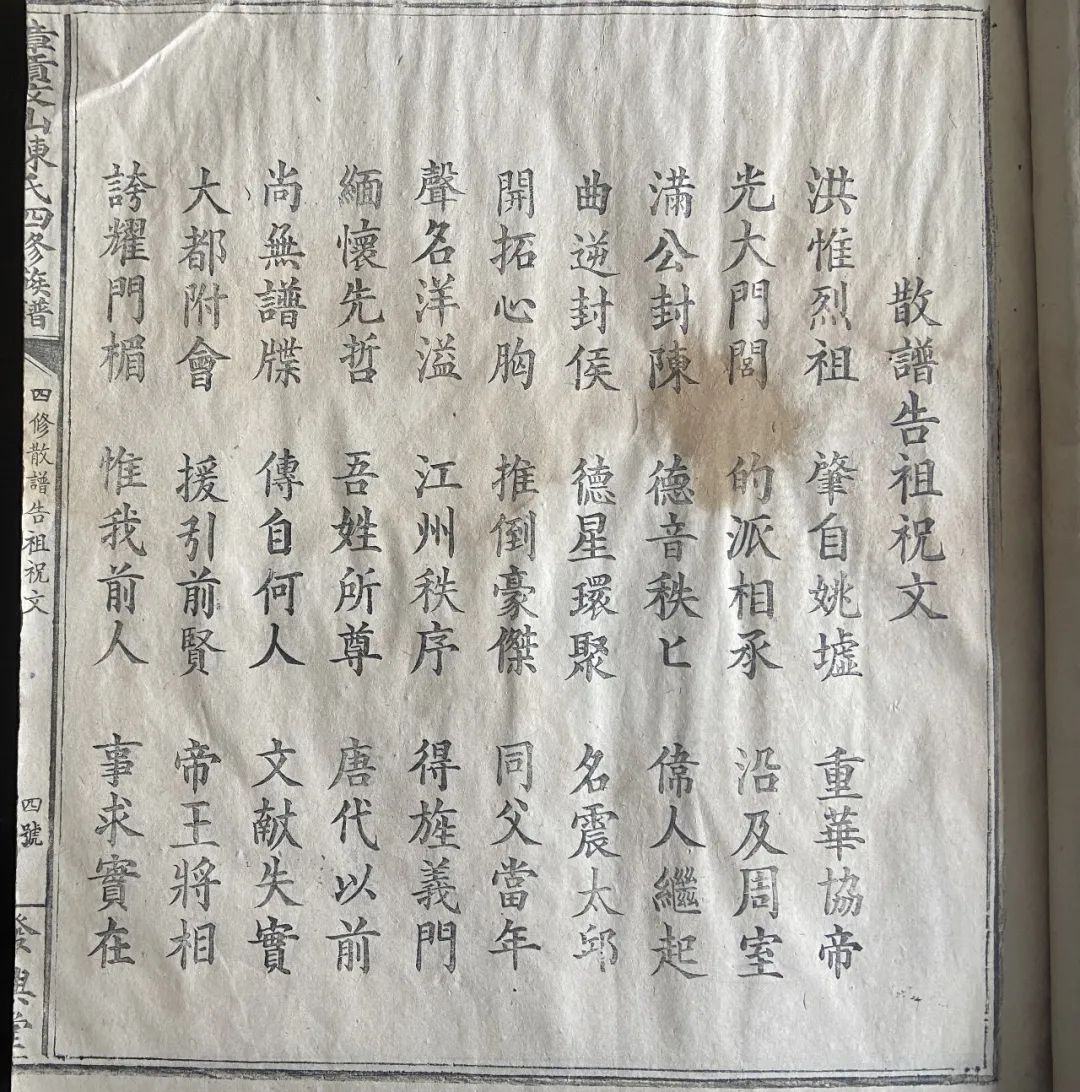 散譜告祖祝文
洪惟烈祖 肇自姚墟 重華協帝
光大門閭 的派相承 沿及周室
滿公封陳 德音秩匕 偉人繼起
曲逆封侯 德星環聚 名震太邱
開拓心胸 推倒豪傑 同父當年
聲名洋溢 江州秩序 得旌義門
緬懷先哲 吾姓所尊 唐代以前
尚無譜牒 傳自何人 文獻失實
大都附會 援引前賢 帝王將相
誇耀門楣 惟我前人 事求實在
章貢文山陳氏四修族譜
四修散譜告祖祝文
四號
發興堂